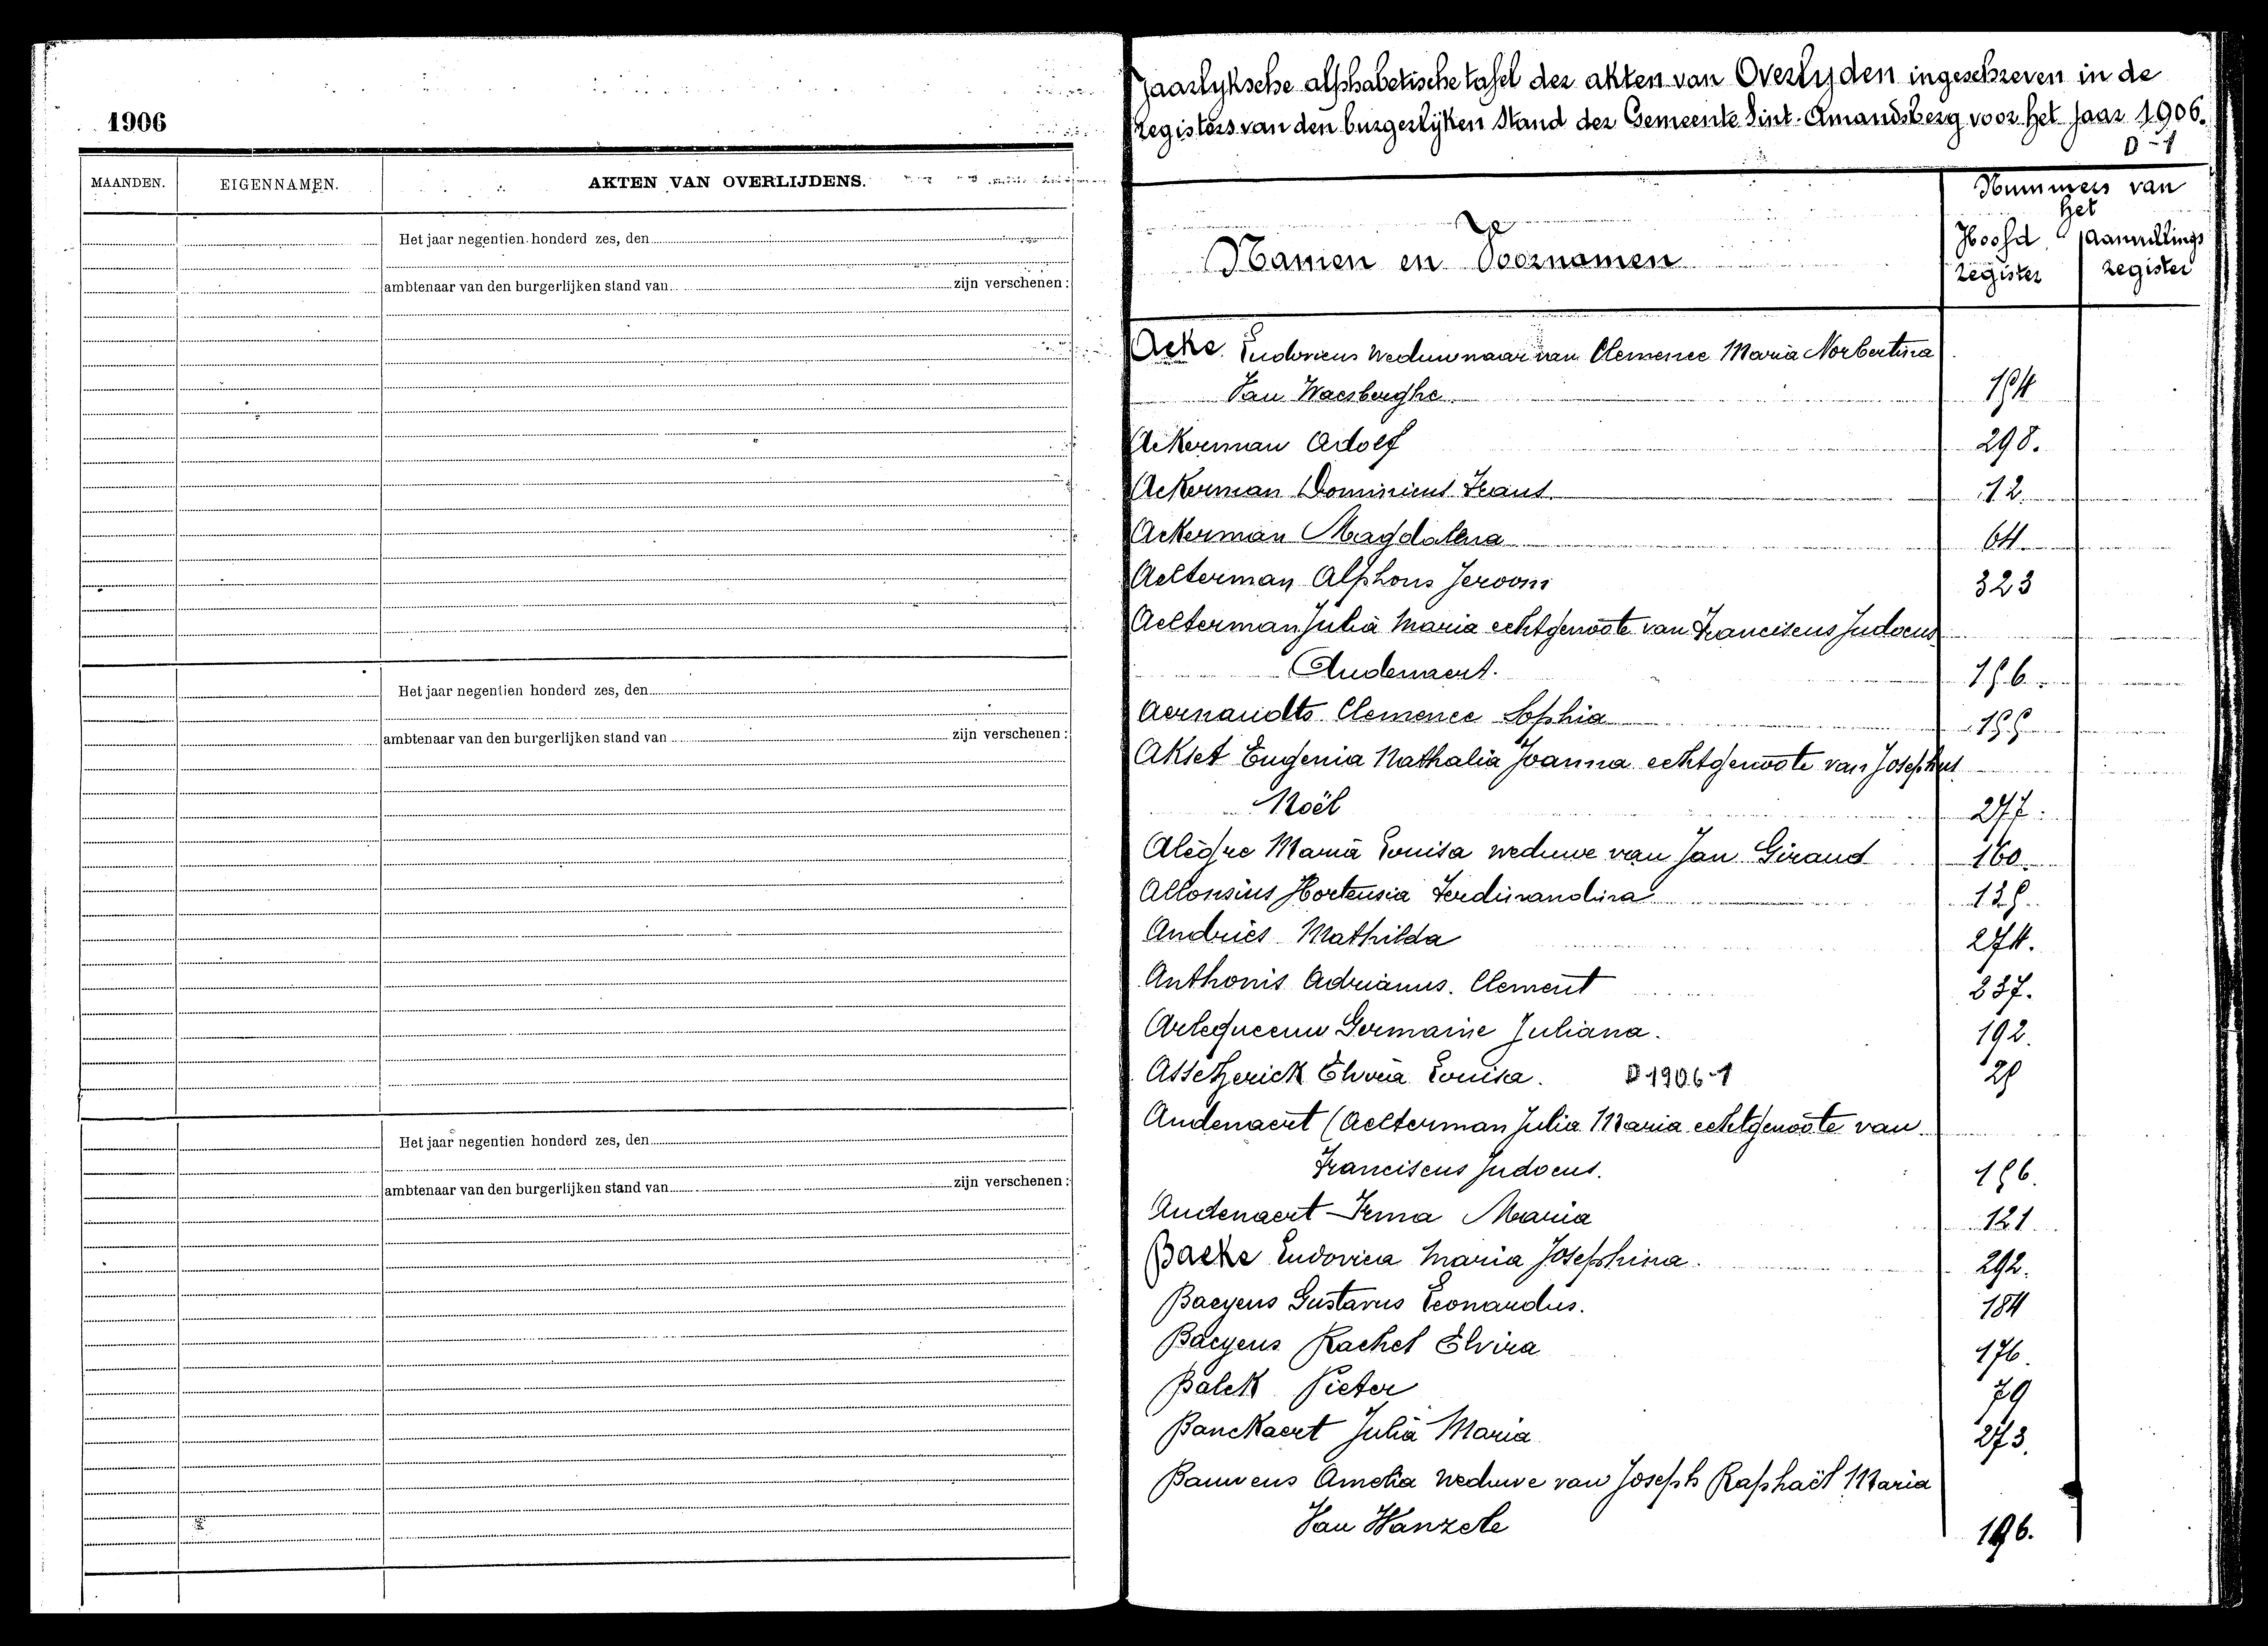 1906
MAANDEN. EIGENNAMEN. AKTEN VAN OVERLIJDENS.
Het jaar negentien honderd zes, den
ambtenaar van den burgerlijken stand van zijn verschenen:
Het jaar negentien honderd zes, den
ambtenaar van den burgerlijken stand van zijn verschenen:
Het jaar negentien honderd zes, den
ambtenaar van den burgerlijken stand van zijn verschenen:
Jaarlyksche alphabetische tafel der akten van Overlyden ingeschreven in de
registers van den burgerlyken Stand der Gemeente Sint-Amandsberg voor het jaar 1906.
D-1
Nummers van
het
Namen en Voornamen
Hoofd
register
register
Acke Ludovicus Weduwnaar van Clemence Maria Norbertina
Van Waesberghe
Ackerman Adolf 298.
Ackerman Dominicus Frans 12
Ackerman Magdalena 64
Aelterman Alphons Jeroom 323
Aelterman Julia Maria echtgenoote van Franciscus Judocus
Audenaert.
Aernaudts Clemence Sophia
Akset Eugenia Nathalia Joanna echtgenoote van Josephus
Noël 277.
Alègre Maria Louisa weduwe van Jan Giraud 160
Allonsius Hortensia Ferdinandina
Andries Mathilda 274.
Anthonis Adrianus Clement
Arlequeeuw Germaine Juliana. 192.
Assez̈erick Elvira Louisa. D 1906-1
Audenaert (Aelterman Julia Maria echtgenoote van
Franciscus Judocus.
Audenaert Irma Maria 121
Backe Ludovica Maria Josephina. 292.
Baeyens Gustavus Leonardus. 184
Baeyens Rachel Elvira 176.
Balck Pieter 79
Banckaert Julia Maria 273.
Bauwens Amelia Weduwe van Joseph Raphaël Maria
Van Wanzele 196.